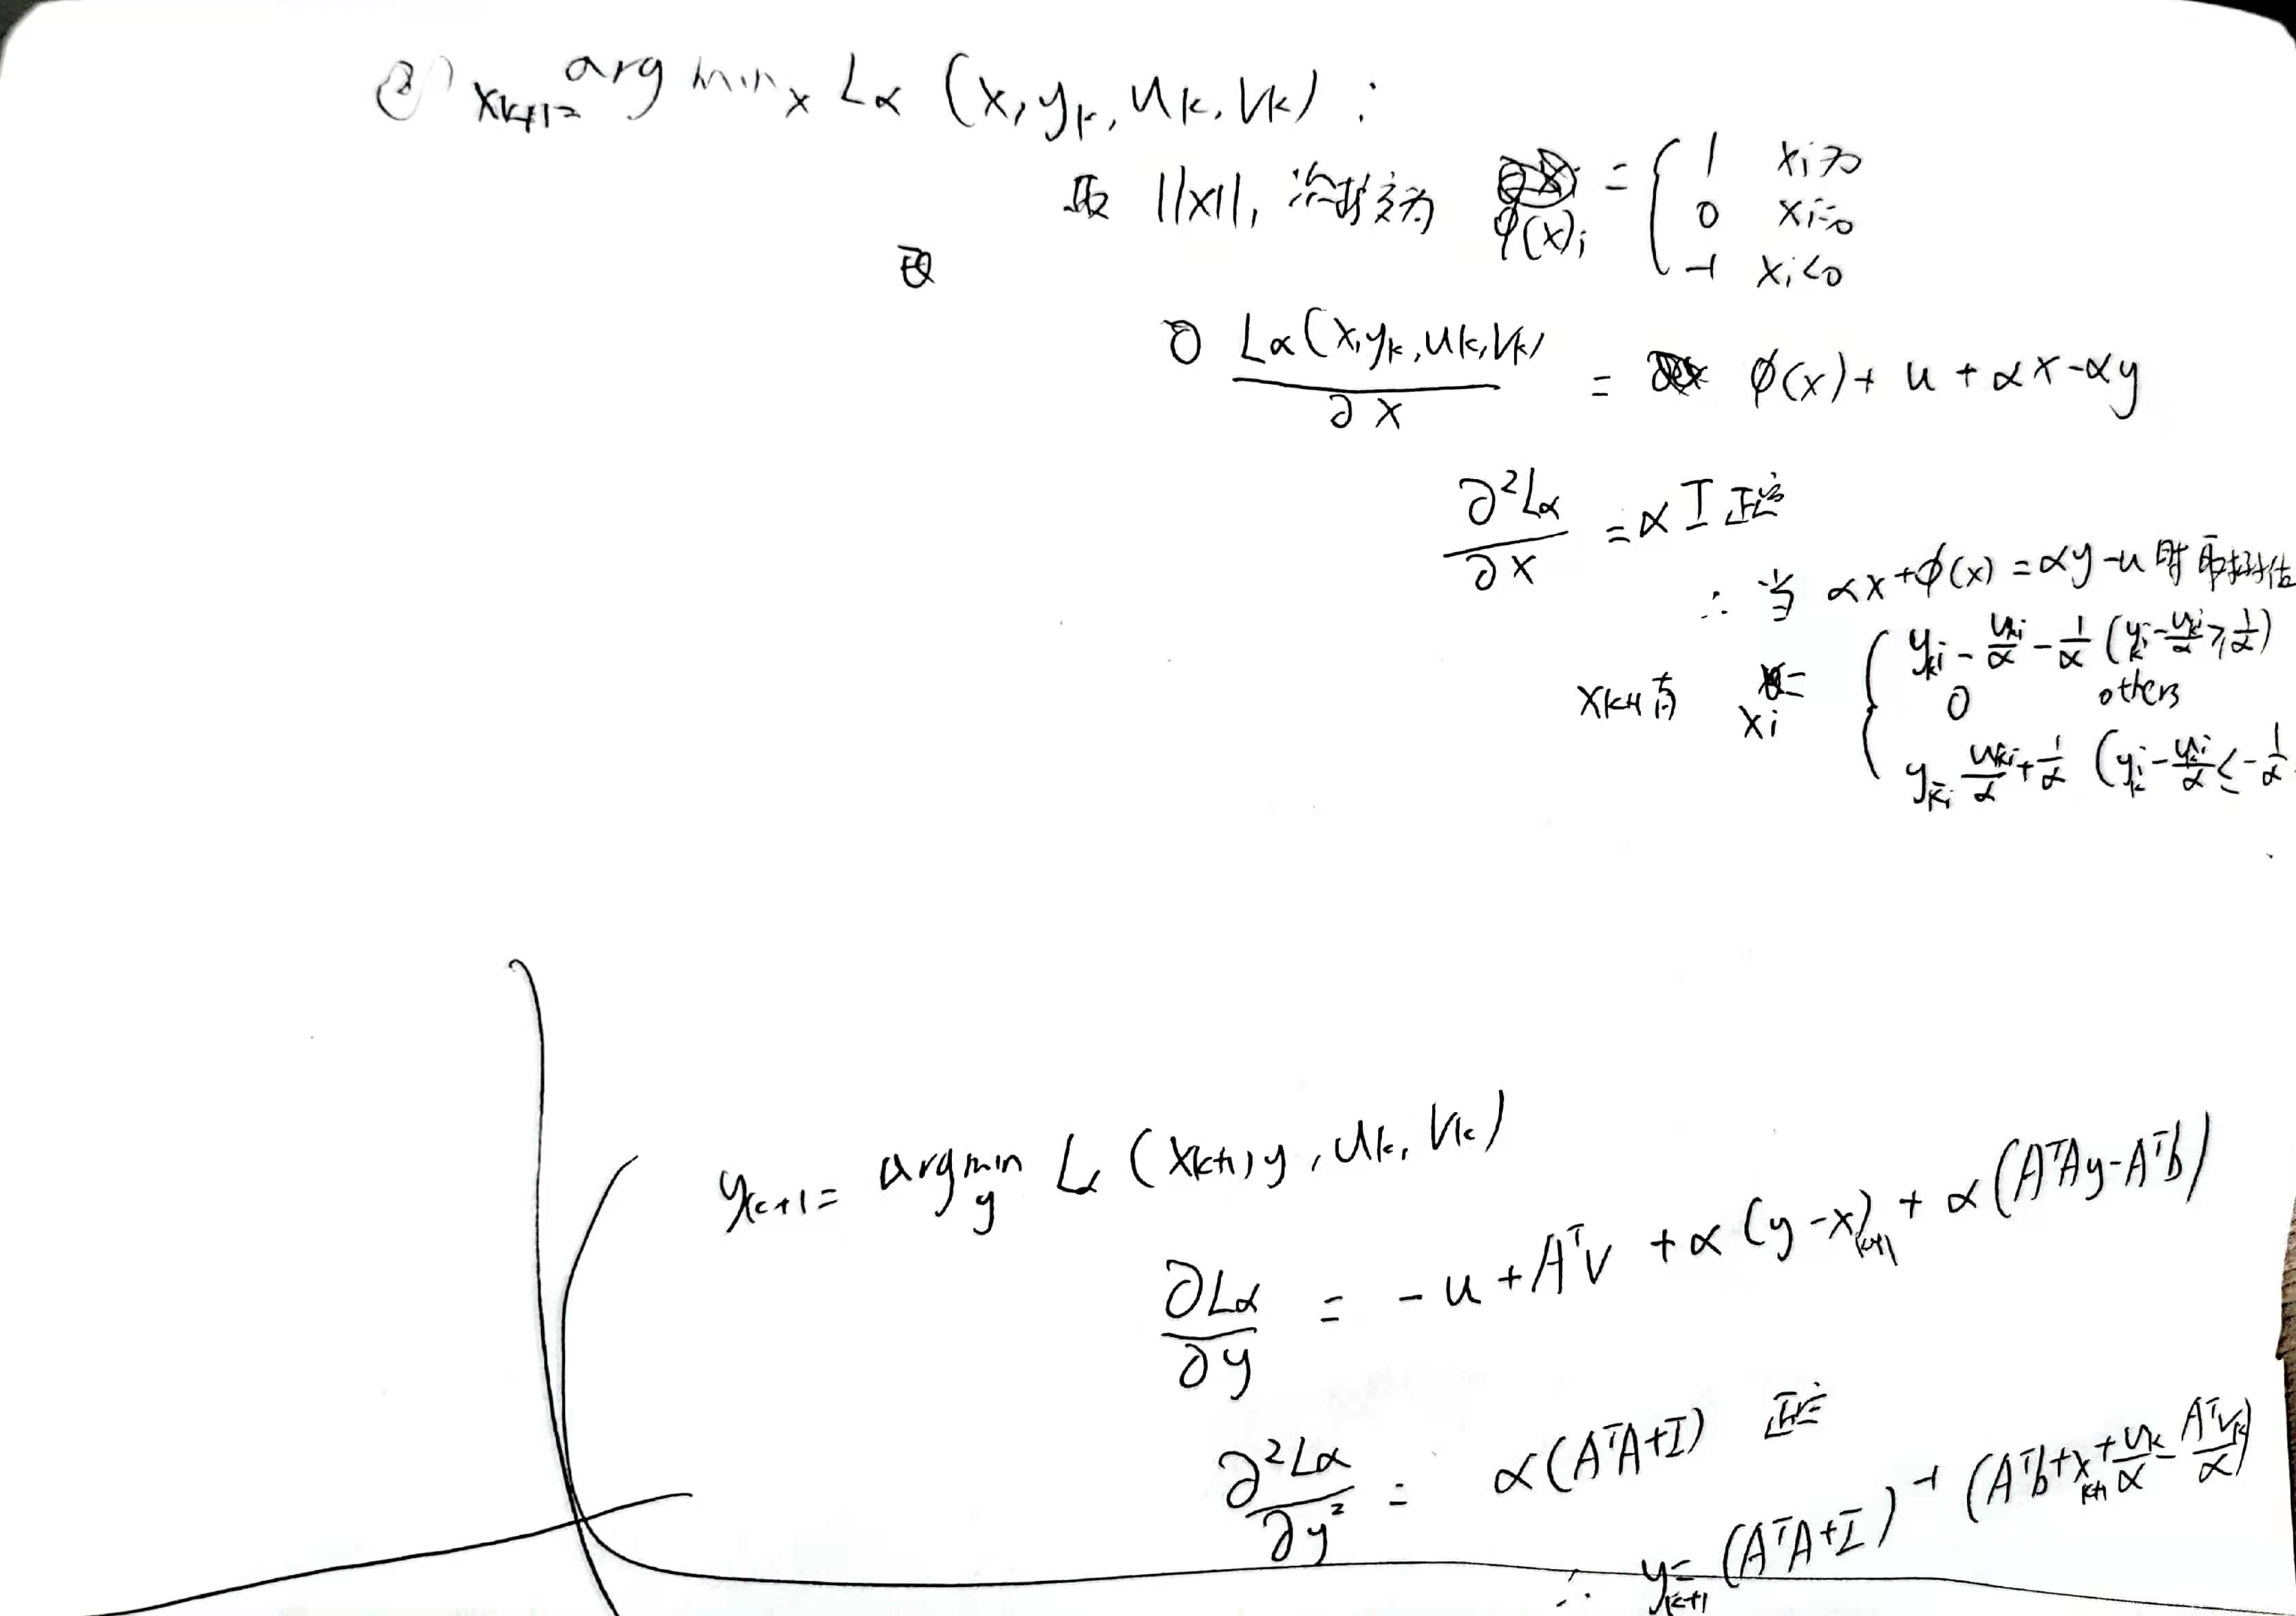 ② x_{k+1} = arg min_x L_α (x, y_k, u_k, v_k) :
取 ||x||_1 次梯度为 φ(x)_i = { 1 x_i>0
0 x_i=0
-1 x_i<0
∂ L_α(x, y_k, u_k, v_k) / ∂x = φ(x) + u + αx - αy
∂²L_α / ∂x = α I 正定
∴ 当 αx + φ(x) = αy - u 时 取
x_{k+1} 有 x_i = { y_{ki} - u_{ki}/α - 1/α (y_k^i - u_k^i/α ≥ 1/α)
0 others
y_{ki} - u_{ki}/α + 1/α (y_k^i - u_k^i/α ≤ -1/α
y_{k+1} = arg min_y L_α (x_{k+1}, y, u_k, v_k)
∂L_α / ∂y = -u + A^T v + α(y - x_{k+1}) + α(A^T A y - A^T b)
∂²L_α / ∂y² = α(A^T A + I) 正定
∴ y_{k+1} = (A^T A + I)^{-1} (A^T b + x_{k+1} + u_k/α - A^T v_k/α)